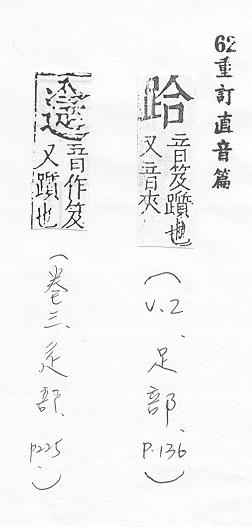 62重訂直音篇
跲音笈躓也又音夾
(V.2、足部、P.136)
音作笈又躓也
(卷三、辵部、P225、)